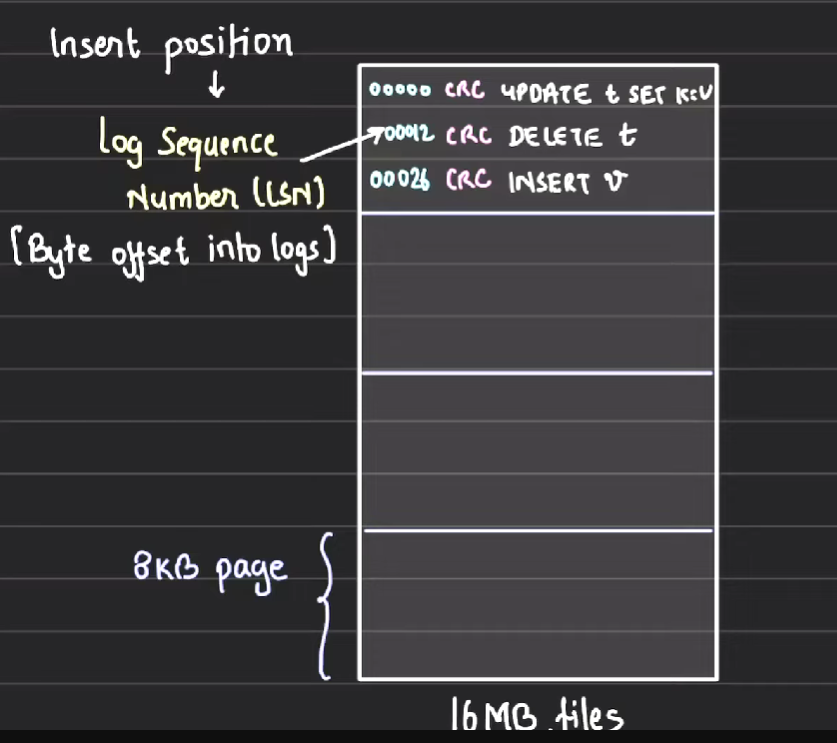 Insert position
↓
Log Sequence
Number (LSN)
[Byte offset into logs]
00000 CRC UPDATE t SET K=V
00012 CRC DELETE t
00026 CRC INSERT v
8KB page
16MB files